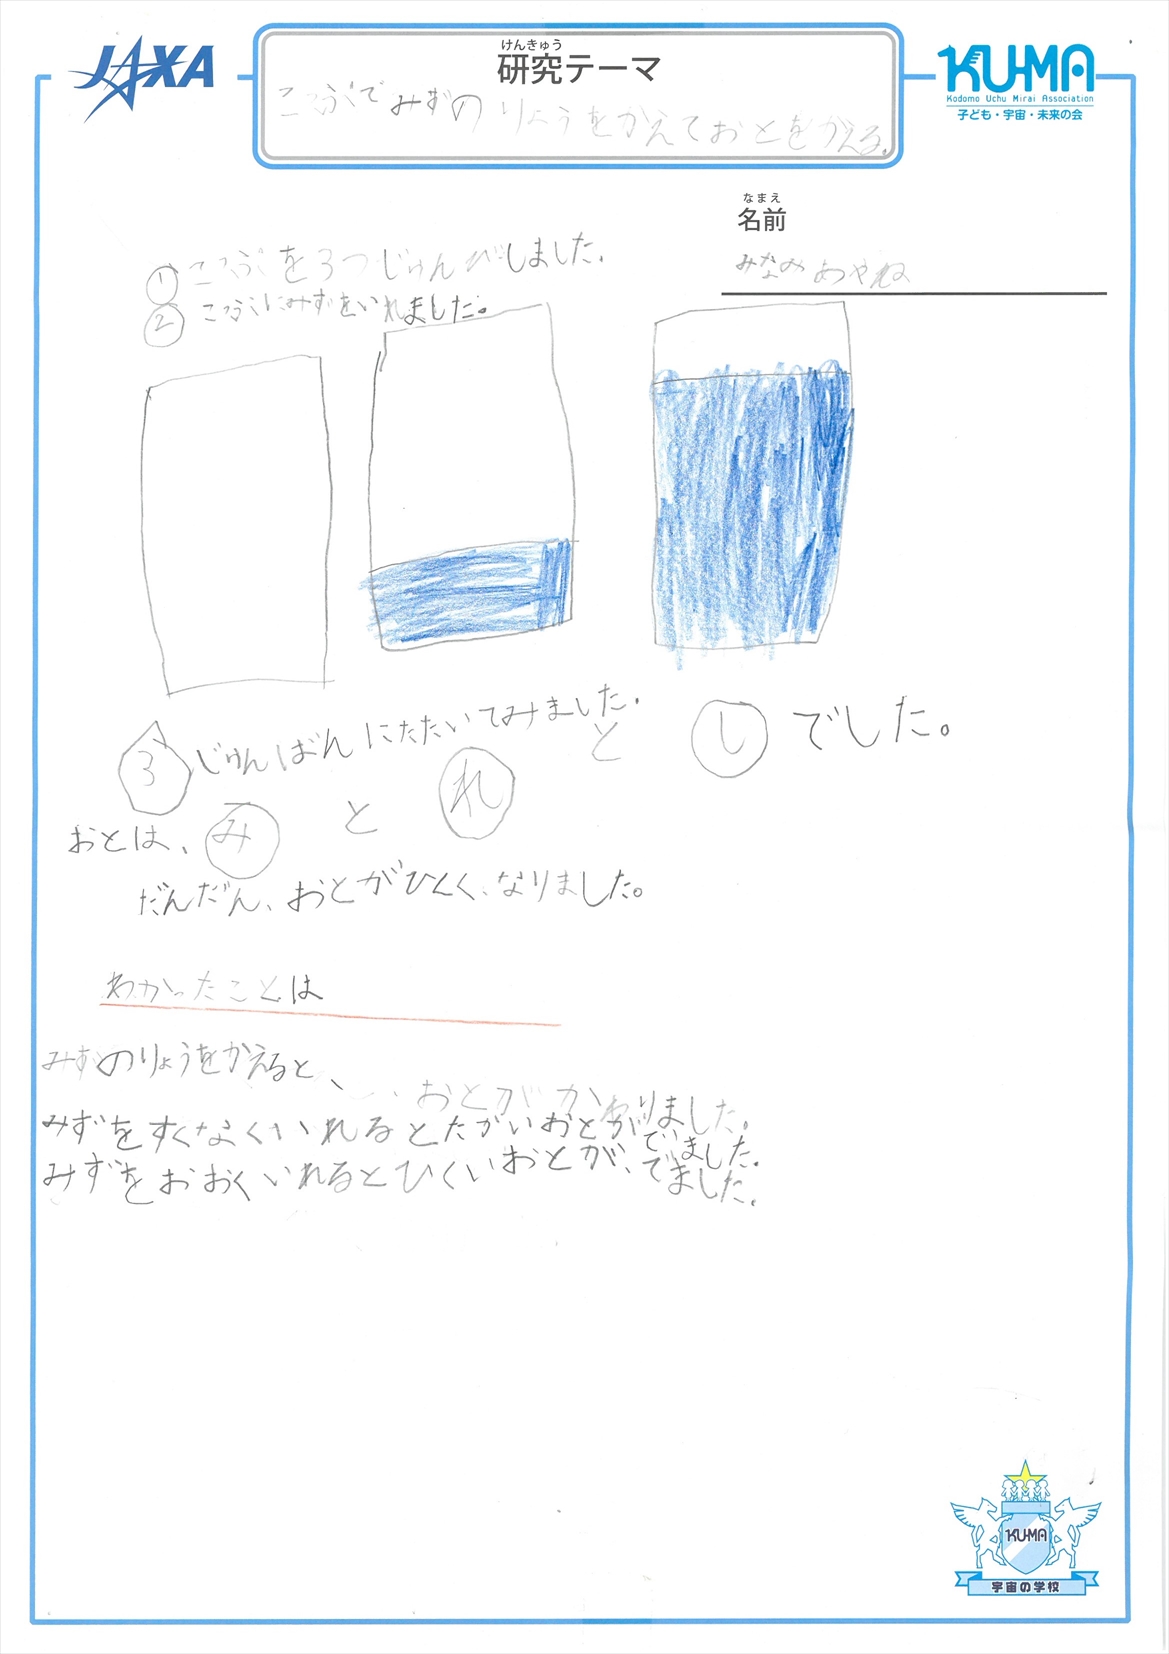 JAXA
けんきゅう
研究テーマ
KU-MA
Kodomo Uchu Mirai Association
子ども・宇宙・未来の会
こっぷでみずのりょうをかえておとをかえる。
なまえ
名前
みなみ あやね
① こっぷを3つじゅんびしました。
② こっぷにみずをいれました。
③ じゅんばんにたたいてみました。
おとは、みとれとしでした。
だんだん、おとがひくく、なりました。
わかったことは
みずのりょうをかえると、おとがかわりました。
みずをすくなくいれるとたかいおとがでいました。
みずをおおくいれるとひくいおとが、でました。
KU-MA
宇宙の学校